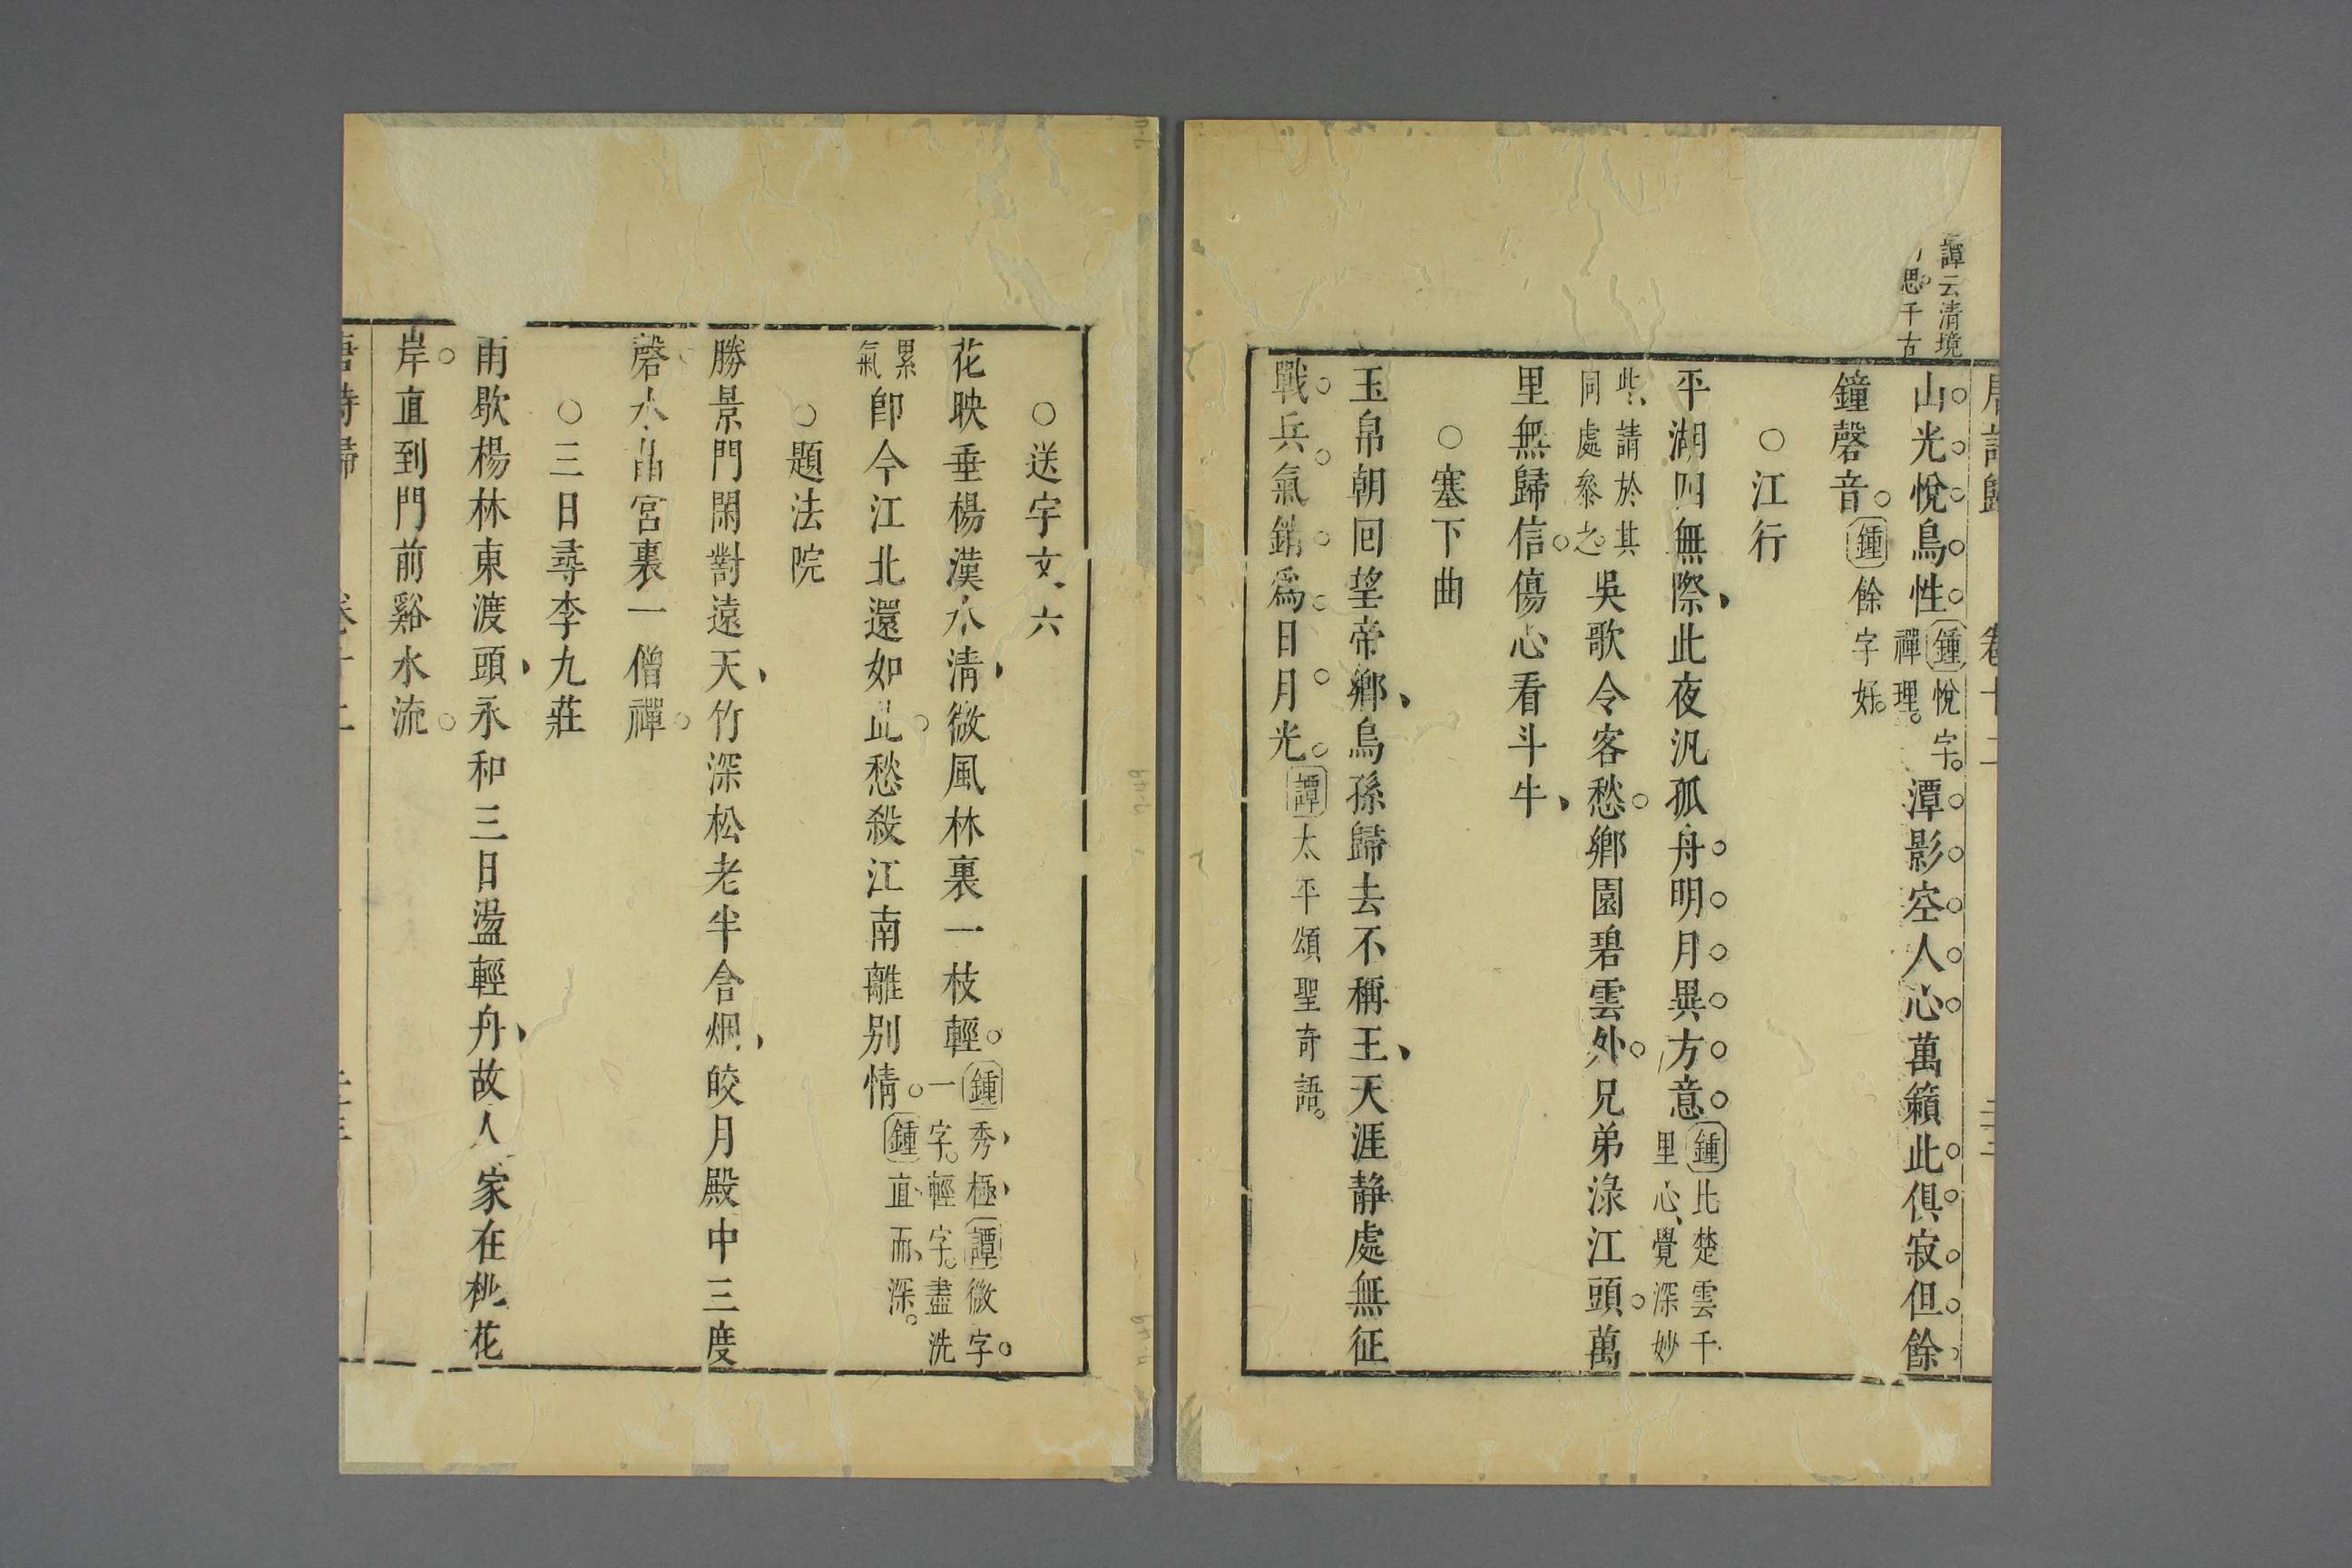 譚云清境
思千古
唐詩歸 卷十二
山光悅鳥性鍾悅字禪理潭影空人心萬籟此俱寂但餘
鐘磬音鍾餘字妊
○江行
平湖四無際此夜汎孤舟明月異方意鍾比楚雲千里心覺深妙
此請於其同處叅之吳歌令客愁鄉園碧雲外兄弟淥江頭萬
里無歸信傷心看斗牛
○塞下曲
玉帛朝回望帝鄉烏孫歸去不稱王天涯靜處無征
戰兵氣銷爲日月光譚太平頌聖奇語
○送宇文六
花映垂楊漢水清微風林裏一枝輕鍾秀極譚微字一字輕字盡洗
累氣卽今江北還如此愁殺江南離別情鍾直而深
○題法院
勝景門閑對遠天竹深松老半含烟皎月殿中三度
磬水晶宮裏一僧禪
○三日尋李九莊
雨歇楊林東渡頭永和三日盪輕舟故人家在桃花
岸直到門前谿水流
唐詩歸 卷十二